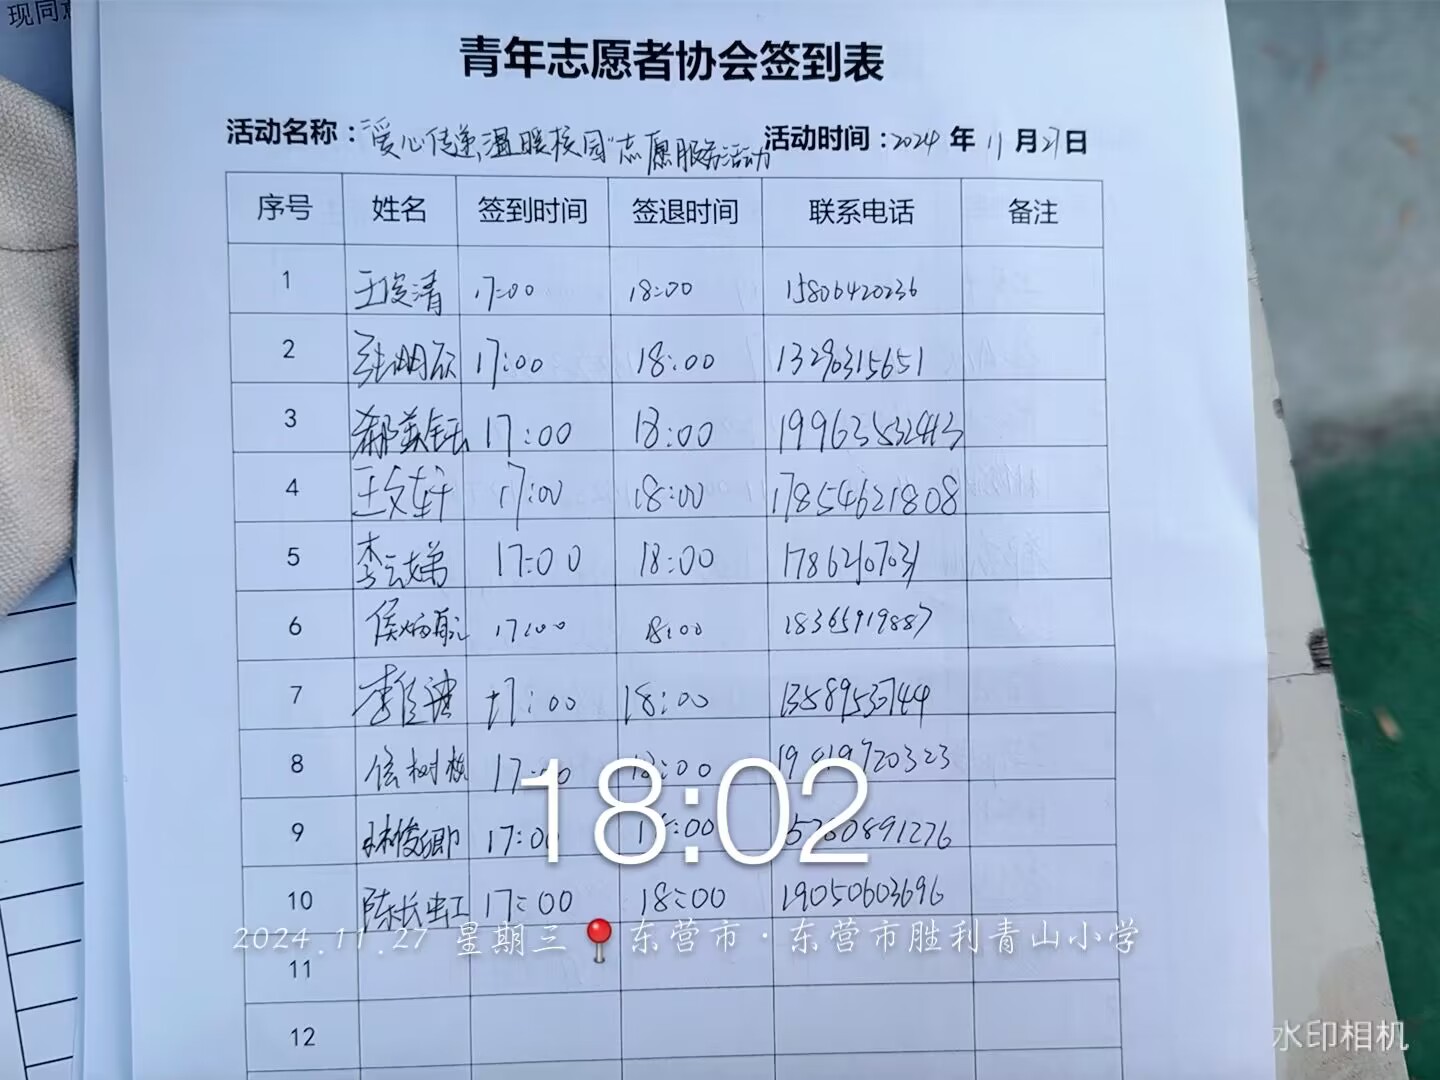 现同意
青年志愿者协会签到表
活动名称：“爱心传递,温暖校园”志愿服务活动 活动时间：2024 年 11 月 27 日
序号 姓名 签到时间 签退时间 联系电话 备注
1 王俊清 17:00 18:00 15806420236
2 张明欣 17:00 18:00
3 17:00 18:00 19963532443
4 王文轩 17:00 18:00 17854621808
5 17:00 18:00
6 17:00 18:00 18365919887
7 17:00 18:00 13589533744
8 17:00 18:00 19819720323
9 林俊卿 17:00 18:00
10 17:00 18:00 19050603696
18:02
2024.11.27 星期三 东营市·东营市胜利青山小学
11
12
水印相机